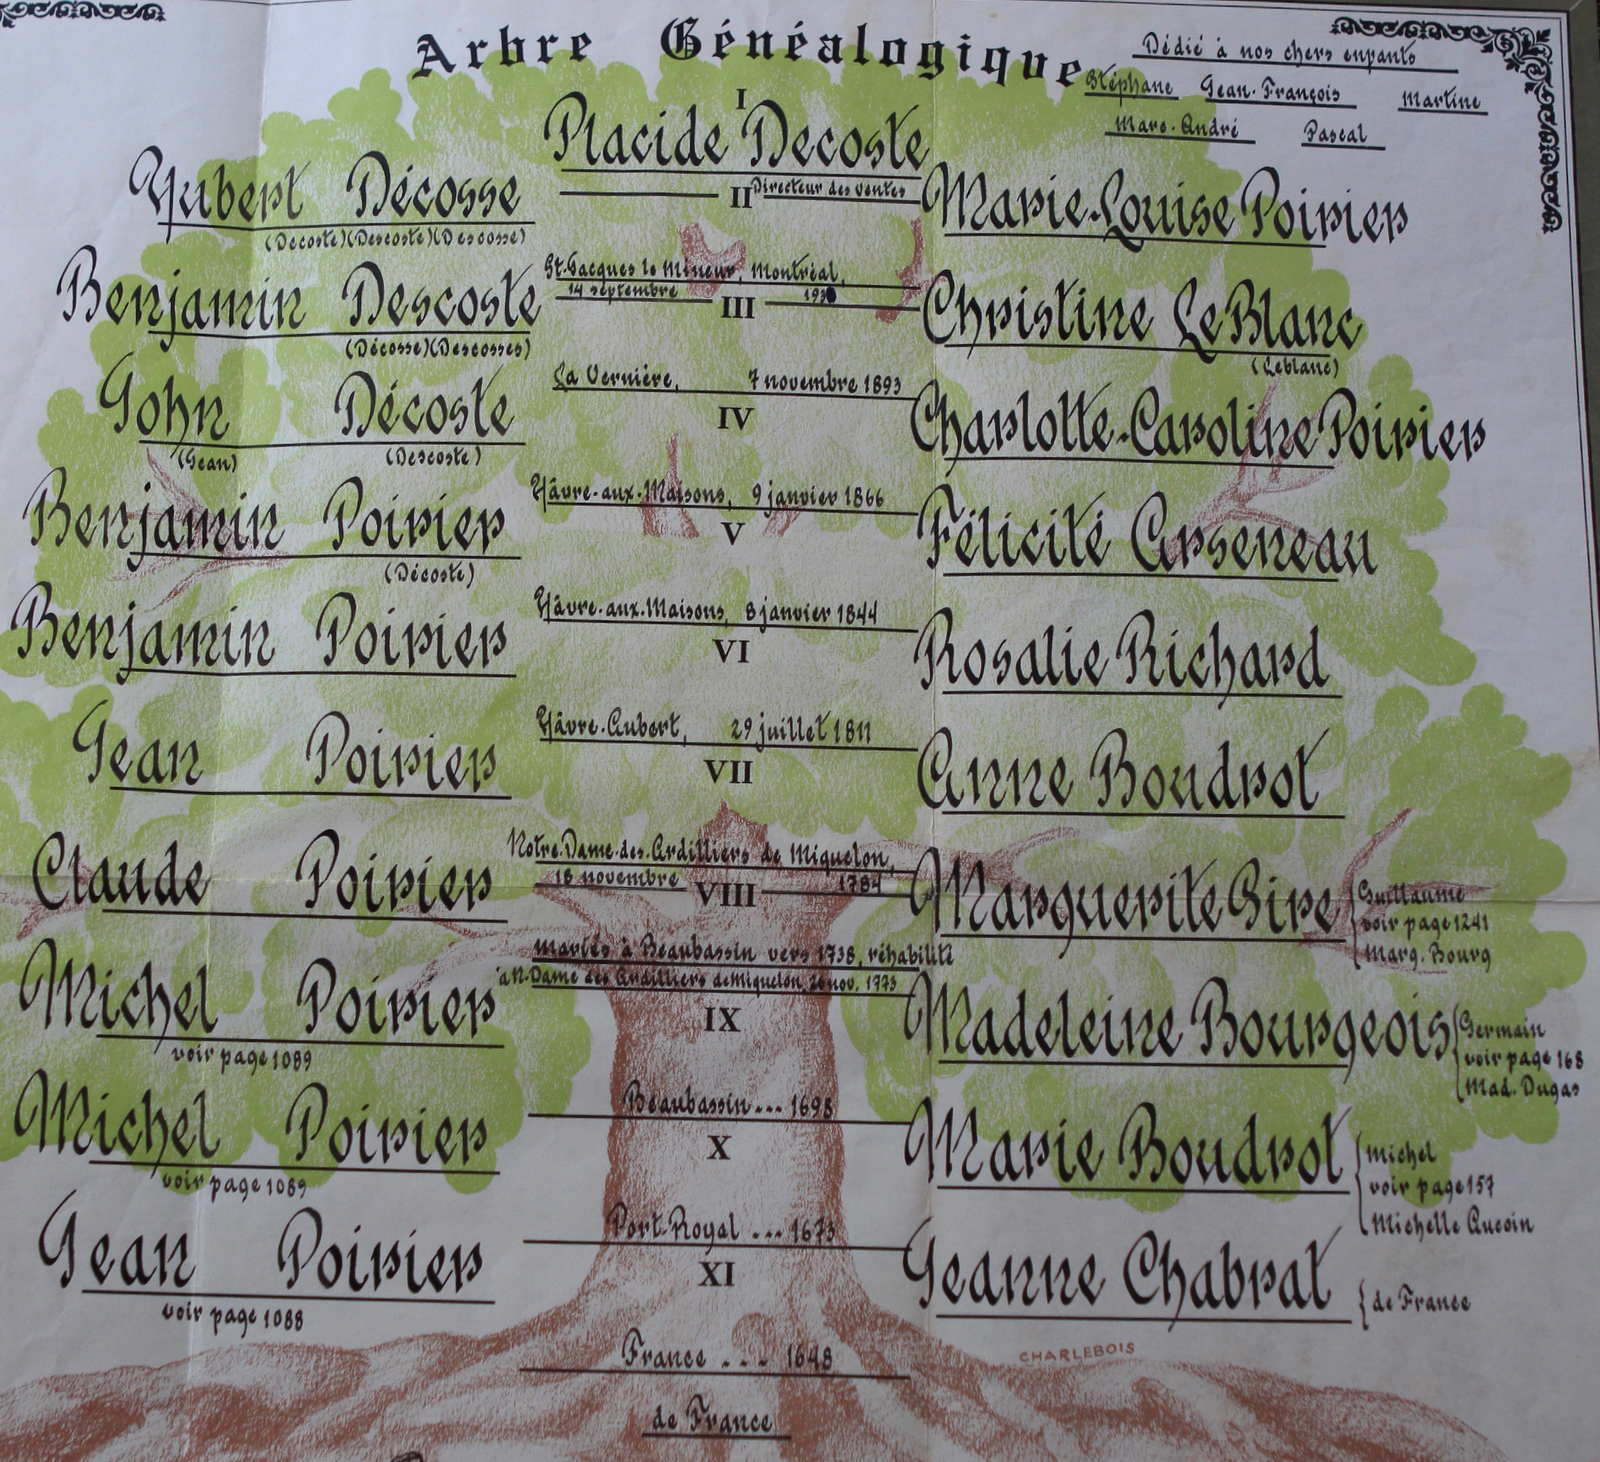 Arbre Généalogique
Dédié à nos chers enfants
Stéphane Jean-François Martine
Marc-André Pascal
I
Placide Decoste
Directeur des ventes
II
Hubert Décosse Marie-Louise Poirier
(Decoste)(Descoste)(Descosse)
St-Jacques le Mineur, Montréal,
14 septembre
III
Benjamin Descoste Christine LeBlanc
(Décosse)(Descosses) (Leblanc)
La Vernière, 7 novembre 1893
IV
John Décoste Charlotte-Caroline Poirier
(Jean) (Descoste)
Hâvre-aux-Maisons, 9 janvier 1866
V
Benjamin Poirier Félicité Arseneau
(Décoste)
Hâvre-aux-Maisons, 8 janvier 1844
VI
Benjamin Poirier Rosalie Richard
Hâvre-Aubert, 29 juillet 1811
VII
Jean Poirier Anne Boudrot
Notre-Dame-des-Ardilliers de Miquelon,
18 novembre 1784
VIII
Claude Poirier Marguerite Sire
Guillaume
voir page 1241
Marg. Bourg
mariés à Beaubassin vers 1738, réhabilité
à N-Dame des Ardilliers de Miquelon, nov. 1773
IX
Michel Poirier Madeleine Bourgeois
voir page 1089
Germain
voir page 168
Mad. Dugas
Beaubassin --- 1698
X
Michel Poirier Marie Boudrot
voir page 1089
Michel
voir page 157
Michelle Aucoin
Port-Royal --- 1673
XI
Jean Poirier Jeanne Chabrat
voir page 1088
de France
France --- 1648
de France
CHARLEBOIS